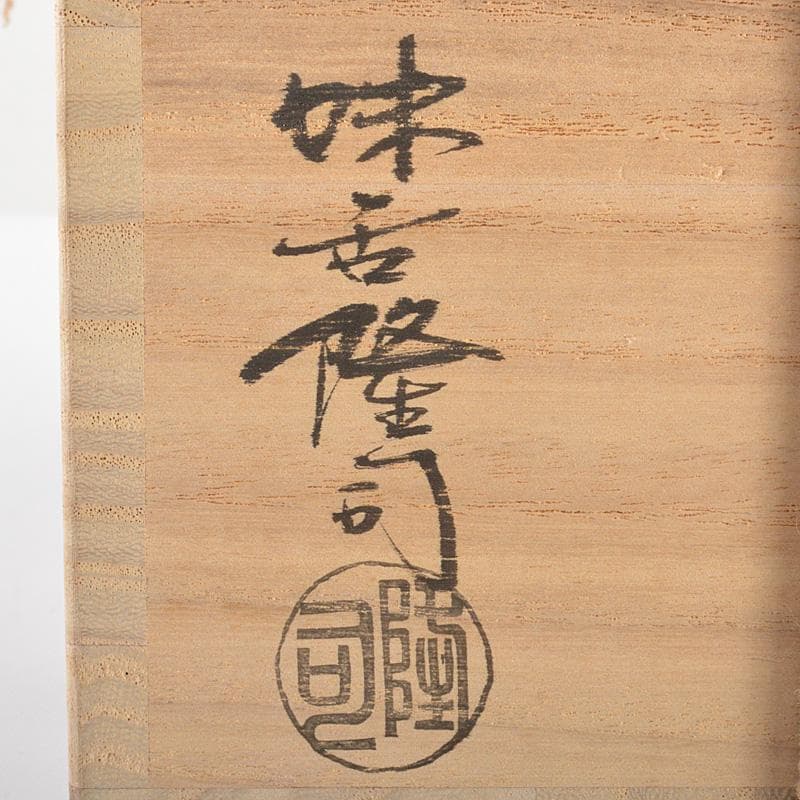 味舌隆司
隆司